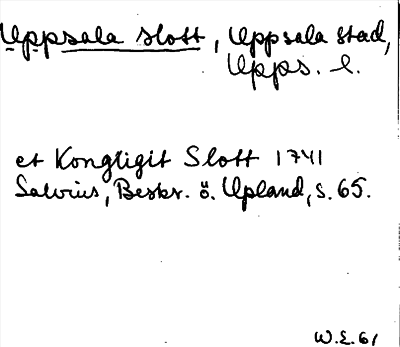 Uppsala slott, Uppsala stad,
Upps. l.
et Kongligit Slott 1741
Salvius, Beskr. ö. Upland, s. 65.
W.E. 61